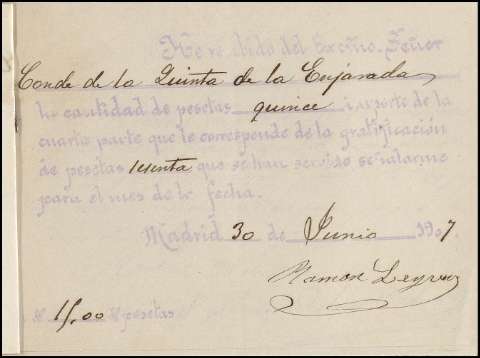 He recibido del Excmo. Señor
Conde de la Quinta de la Enjarada
la cantidad de pesetas quince importe de la
cuarta parte que le corresponde de la gratificación
de pesetas sesenta que se han servido señalarme
para el mes de la fecha.
Madrid 30 de Junio 1907
Ramon
15,00 pesetas